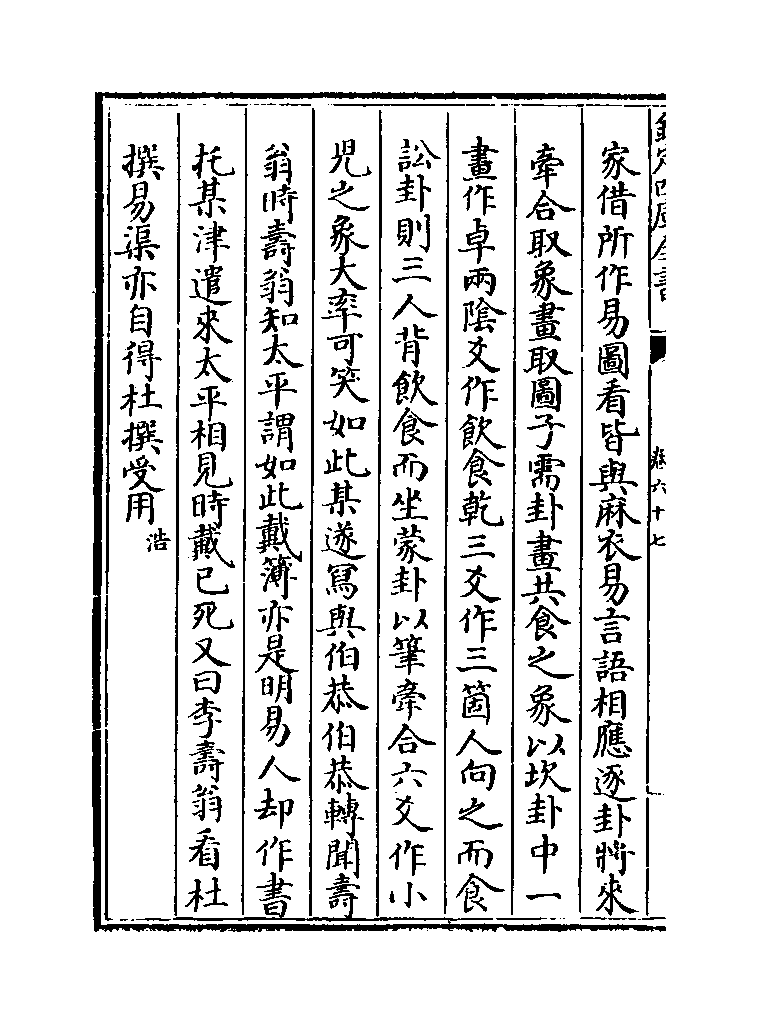 家借所作易圖看皆與麻衣易言語相應逐卦將來
牽合取象畫取圖子需卦畫共食之象以坎卦中一
畫作卓兩陰爻作飲食乾三爻作三箇人向之而食
訟卦則三人背飲食而坐蒙卦以筆牽合六爻作小
兒之象大率可笑如此某遂寫與伯恭伯恭轉聞壽
翁時壽翁知太平謂如此戴簿亦是明易人却作書
托某津遣來太平相見時戴已死又曰李壽翁看杜
撰易渠亦自得杜撰受用浩
卷六十七